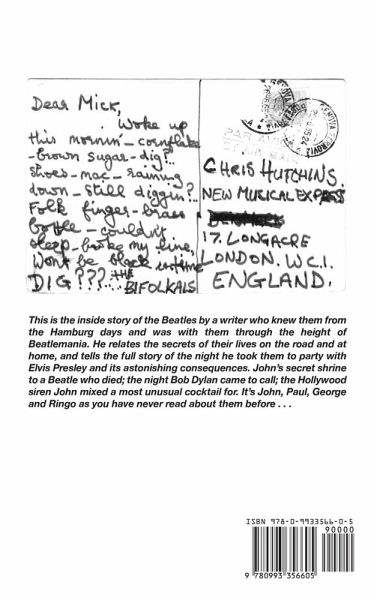 Dear Mick,
Woke up
this mornin' - cornflake
- brown sugar - dig?..
shoes - mac - raining
down - still diggin?..
Folk finger - brass
bottle - couldn't
sleep - broke my line,
Wont be black
DIG??? THE
BIFOLKALS
CHRIS HUTCHINS.
NEW MUSICAL EXPRESS
17. LONGACRE
LONDON. W.C.1.
ENGLAND.
This is the inside story of the Beatles by a writer who knew them from
the Hamburg days and was with them through the height of
Beatlemania. He relates the secrets of their lives on the road and at
home, and tells the full story of the night he took them to party with
Elvis Presley and its astonishing consequences. John's secret shrine
to a Beatle who died; the night Bob Dylan came to call; the Hollywood
siren John mixed a most unusual cocktail for. It's John, Paul, George
and Ringo as you have never read about them before . . .
ISBN 978-0-9933566-0-5
90000
9 780993 356605